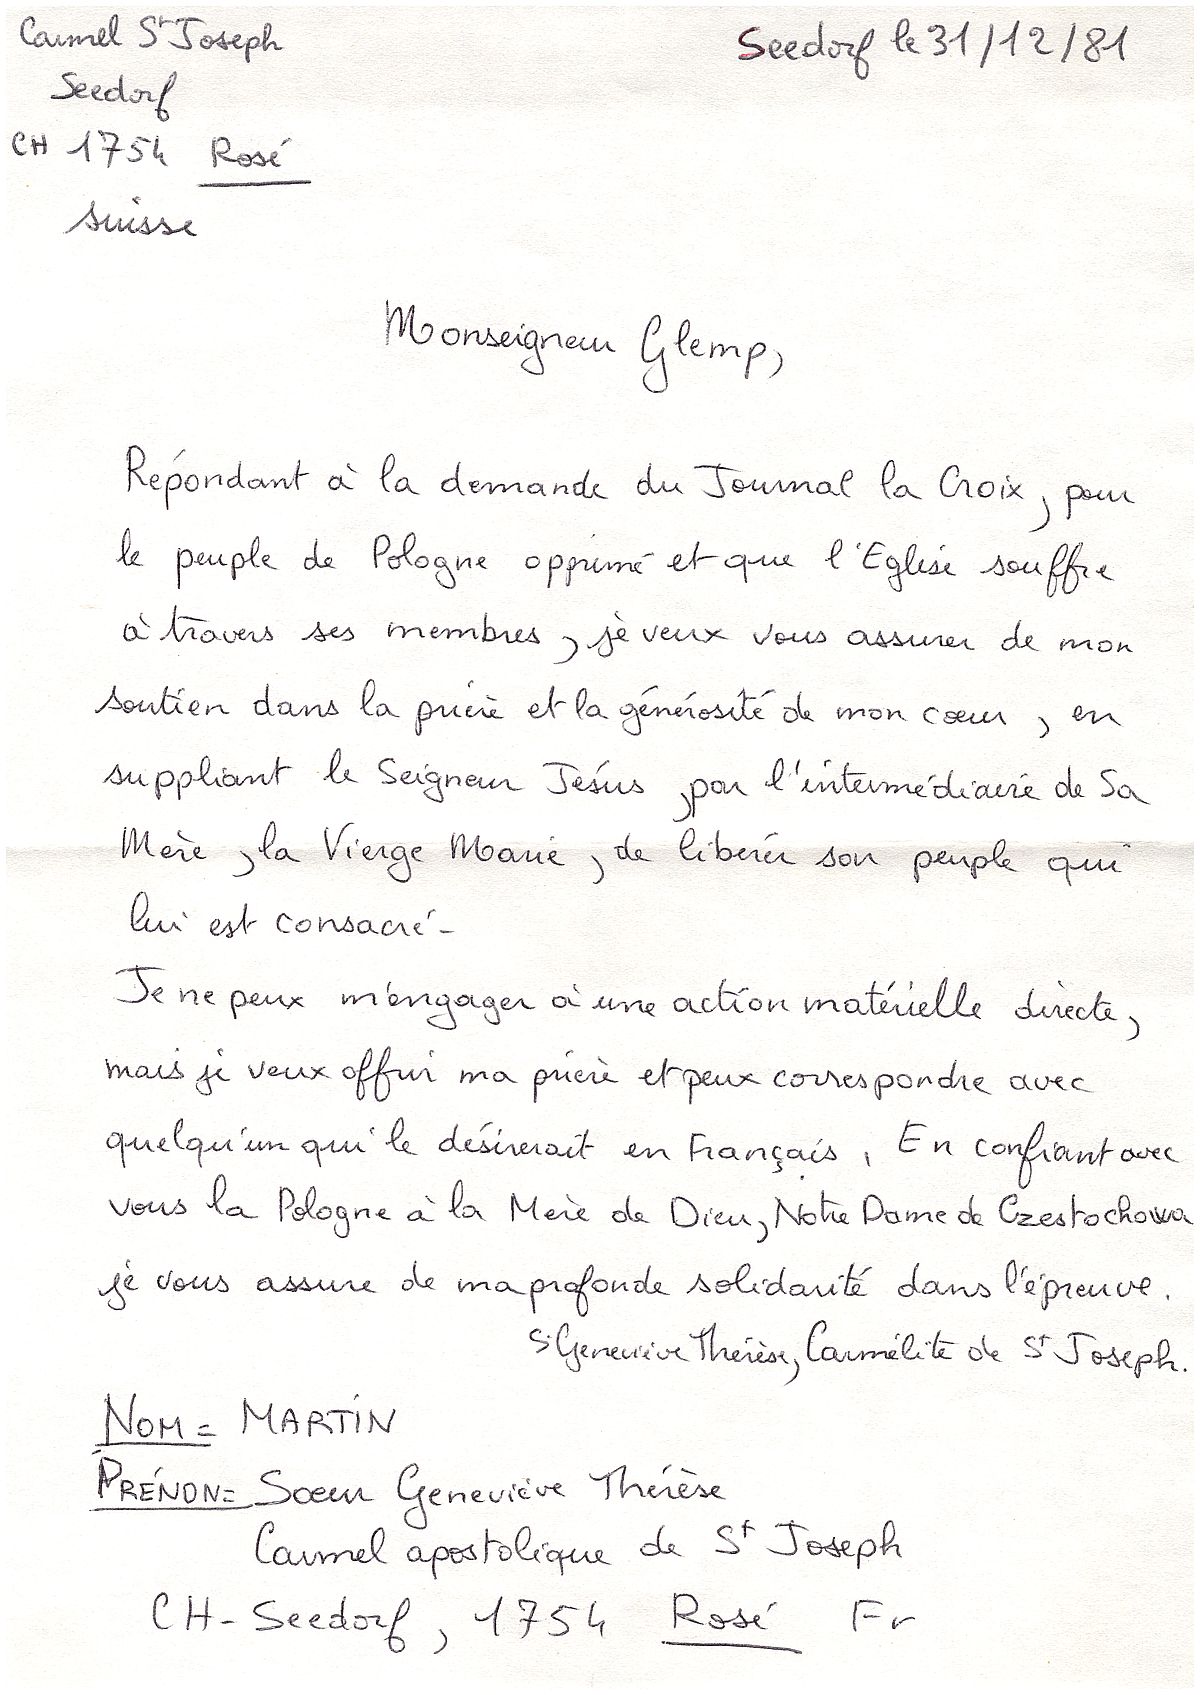 Carmel St Joseph
Seedorf
CH 1754 Rosé
Suisse
Seedorf le 31/12/81
Monseigneur Glemp,
Répondant à la demande du Journal la Croix, pour
le peuple de Pologne opprimé et que l'Eglise souffre
à travers ses membres, je veux vous assurer de mon
soutien dans la prière et la générosité de mon cœur, en
suppliant le Seigneur Jésus, par l'intermédiaire de Sa
Mère, la Vierge Marie, de libérer son peuple qui
lui est consacré-
Je ne peux m'engager à une action matérielle directe,
mais je veux offrir ma prière et peux correspondre avec
quelqu'un qui le désirerait en Français. En confiant avec
vous la Pologne à la Mère de Dieu, Notre Dame de Czestochowa
je vous assure de ma profonde solidarité dans l'épreuve.
Sr Geneviève Thérèse, Carmélite de St Joseph.
NOM = MARTIN
PRÉNON = Sœur Geneviève Thérèse
Carmel apostolique de St Joseph
CH - Seedorf, 1754 Rosé Fr